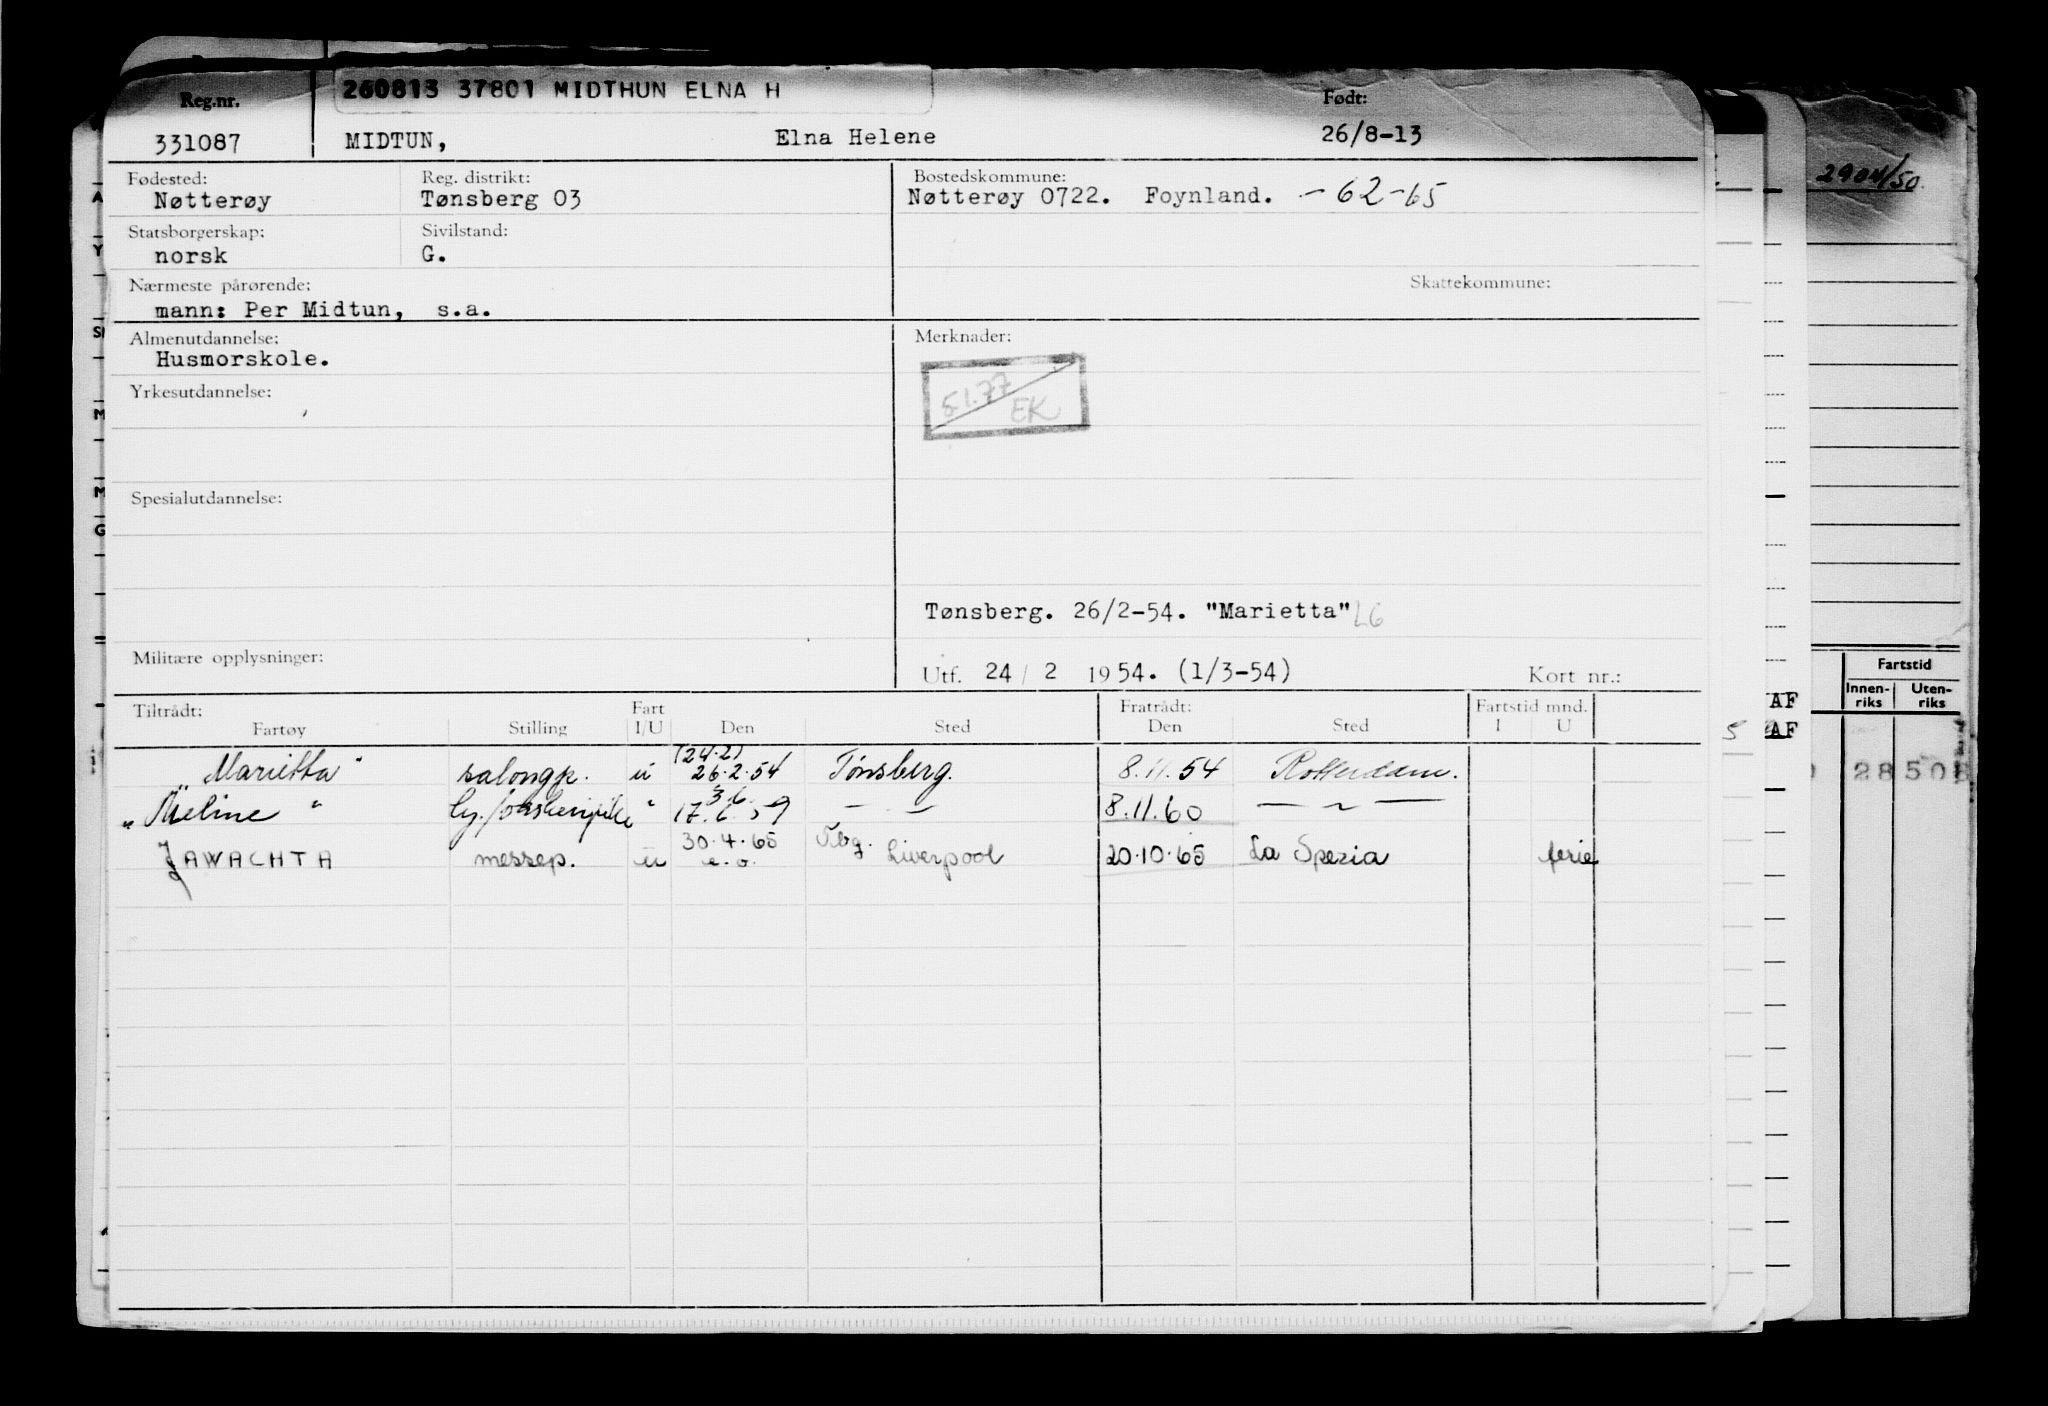 260813 37801 MIDTHUN ELNA H
Reg.nr. Født:
331087 MIDTUN, Elna Helene 26/8-13
Fødested: Reg. distrikt: Bostedskommune:
Nøtterøy Tønsberg 03 Nøtterøy 0722. Foynland. -62-65
Statsborgerskap: Sivilstand:
norsk G.
Nærmeste pårørende: Skattekommune:
mann: Per Midtun, s.a.
Almenutdannelse: Merknader:
Husmorskole.
Yrkesutdannelse:
5.1.77
EK
Spesialutdannelse:
Tønsberg. 26/2-54. "Marietta" L6
Militære opplysninger:
Utf. 24/2 1954. (1/3-54) Kort nr.:
Tiltrådt: Fart Fratrådt: Fartstid mnd.
Fartøy Stilling I/U Den Sted Den Sted I U
(24.2)
"Marietta" salongp. u 26.2.54 Tønsberg. 8.11.54 Rotterdam.
3.6.
"Meline" " 17.6.59 — " — 8.11.60 — " —
30.4.65 Tbg.
JAWACHTA messep. u e.o. Liverpool 20.10.65 La Spezia ferie
2904/50.
Fartstid
Innen-riks Uten-riks
AF
5 AF
28 508